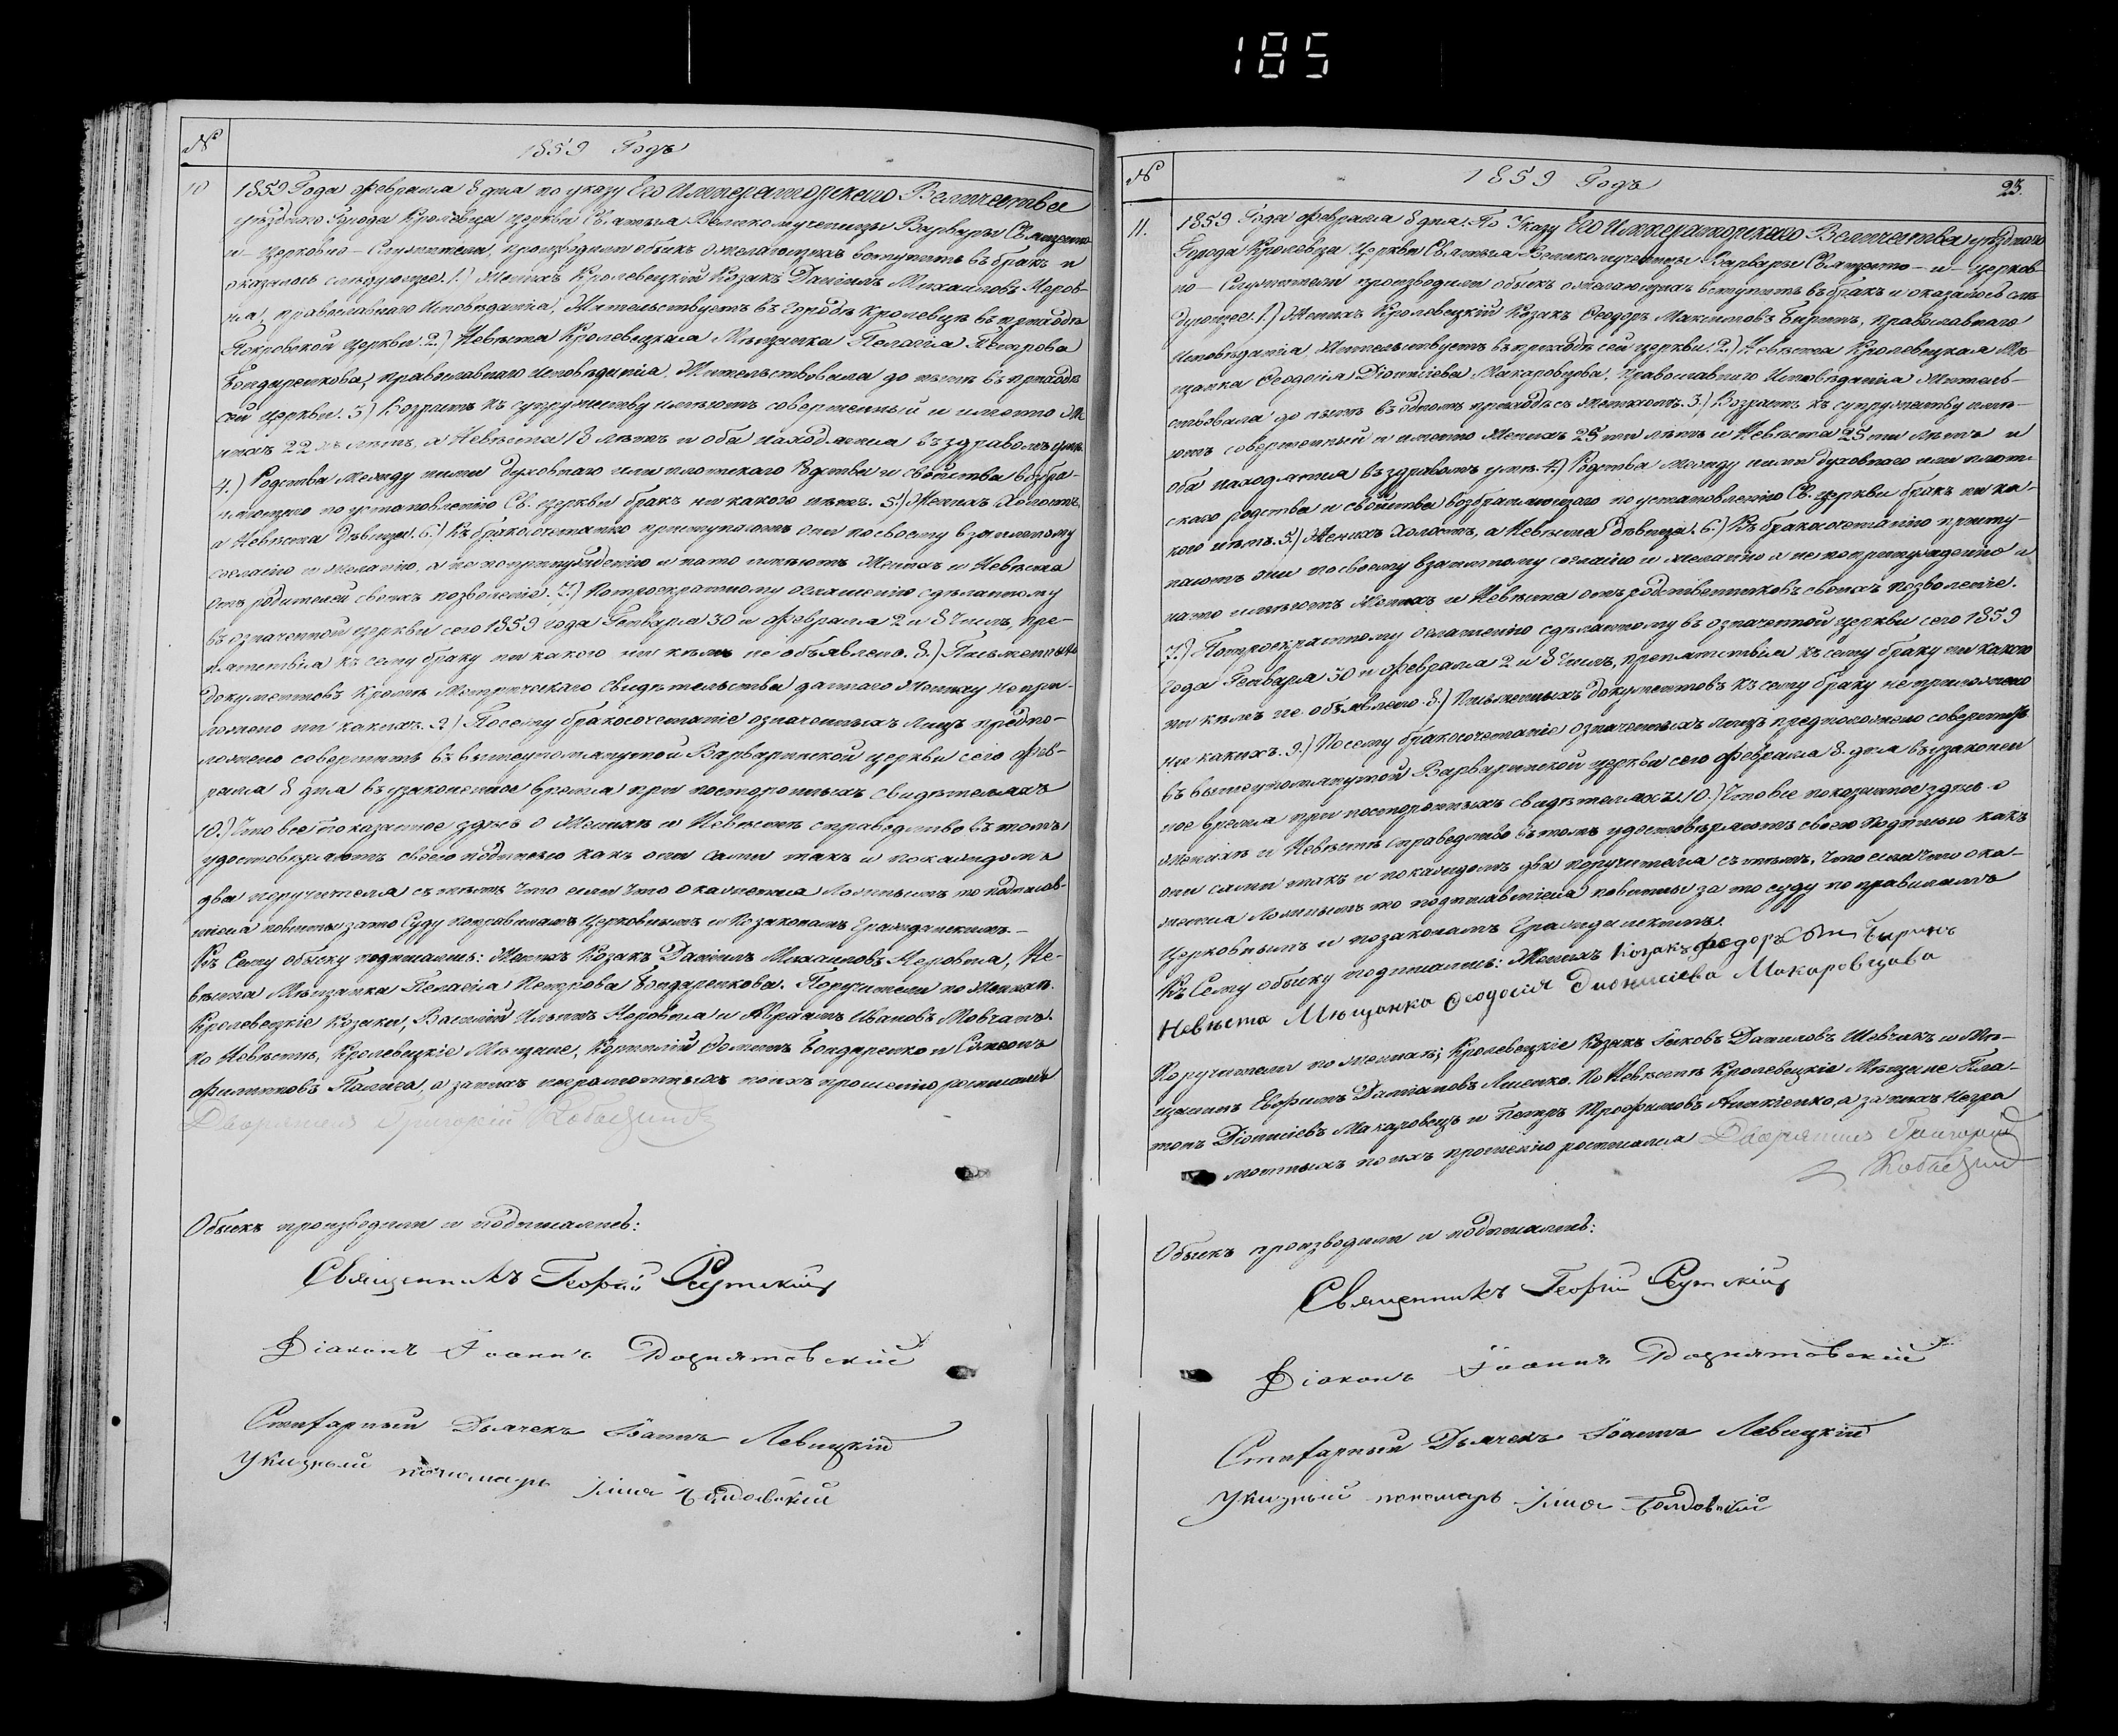 185
№
1859 Годъ
10
1859 Года Февраля 8 дня по указу Его Императорскаго Величества
уѣзднаго Города Кролевца церкви Святыя Великомученицы Варвары Священно
и- Церковно- Служители, производили обыскъ о желающихъ вступить въ бракъ и
оказалось слѣдующее. 1.) Женихъ Кролевецкій Козакъ Даніилъ Михаиловъ Неров-
ня, православнаго Исповѣданія, Жительствуетъ въ Городѣ Кролевцѣ въ приходѣ
Покровской Церкви. 2.) Невѣста Кролевецкая Мѣщанка Пелагія Петрова
Бондаренкова, православнаго исповѣданія. Жительствовала до нынѣ въ приходѣ
сей церкви. 3) Возрастъ къ супружеству имѣютъ совершенный и именно Же
нихъ 22 хъ лѣтъ, а Невѣста 18 лѣтъ и оба находятся въ здравомъ умѣ.
4.) Родства между ними духовнаго или плотскаго родства и свойства возбра-
няющаго по установленію Св. церкви бракъ ни какого нѣтъ. 5.) Женихъ Холостъ,
а Невѣста Дѣвица. 6.) Къ бракосочетанію приступаютъ они по своему взаимному
согласію и желанію, а не по принужденію и на то имѣютъ Женихъ и Невѣста
отъ родителей своихъ позволеніе. 7.) По троекратному оглашенію сдѣланному
въ означенной церкви сего 1859 года Генваря 30 и Февраля 2 и 8 Чиселъ, пре-
пятствія къ сему браку ни какого ни кѣмъ не объявлено. 8.) Письменныхъ
документовъ кромѣ Метрическаго свидѣтельства даннаго Жениху не при-
ложено ни какихъ. 9.) Посему бракосочетаніе означенныхъ лицъ предпо-
ложено совершить въ вышеупомянутой Варваринской церкви сего Фев-
раля 8 дня въ узаконенное время при постороннихъ свидѣтеляхъ
10.) Что все показанное здѣсь о Женихѣ и Невѣстѣ справедливо въ томъ
удостовѣряютъ своею подписью какъ они сами такъ и по каждомъ
два поручителя съ тѣмъ что если что окажется ложнымъ то подписав-
шіеся повинны за то Суду по правиламъ Церковнымъ и по законамъ Гражданскимъ.-
Къ Сему обыску подписались: Женихъ Козакъ Даніилъ Михаиловъ Неровня, Не-
вѣста Мѣщанка Пелагія Петрова Бондаренкова. Поручители по Женихѣ.
Кролевецкіе Козаки, Василій Ильинъ Неровня и Авраамъ Ивановъ Мовчанъ.
По Невѣстѣ, Кролевецкіе Мѣщане, Корнилій Фоминъ Бондаренко и Симеонъ
Филиповъ, а за нихъ неграмотныхъ по ихъ прошенію росписался
Дворянинъ Григорій
Обыскъ производили и подписались:
Священникъ Георгій
Діаконъ Іоаннъ
Штатный Дьячекъ Іоаннъ Левицкій
Указный пономарь
№
1859 Годъ
23.
11.
1859 Года Февраля 8 дня. По Указу Его Императорскаго Величества уѣзднаго
Города Кролевца Церкви Святыя Великомученицы Варвары Священно- и- церков-
но- Служители производили обыскъ о желающихъ вступить въ бракъ и оказалось слѣ-
дующее. 1.) Женихъ Кролевецкій Козакъ Ѳеодоръ Максимовъ Биринъ, православнаго
исповѣданія, Жительствуетъ въ приходѣ сей церкви. 2.) Невѣста Кролевецкая Мѣ-
щанка Ѳеодосія Діонисіева Макаровцова, православнаго Исповѣданія Житель-
ствовала до нынѣ въ одномъ приходѣ съ Женихомъ. 3.) Возрастъ къ супружеству имѣ-
ютъ совершенный и именно Женихъ 25 ти лѣтъ и Невѣста 25 ти лѣтъ и
оба находятся въ здравомъ умѣ. 4.) Родства Между ними духовнаго или плот-
скаго родства и свойства возбраняющаго по установленію Св. церкви бракъ ни ка-
кого нѣтъ. 5.) Женихъ Холостъ, а Невѣста дѣвица. 6.) Къ бракосочетанію присту-
паютъ они по своему взаимному согласію и желанію а не по принужденію и
на то имѣютъ Женихъ и Невѣста отъ родственниковъ своихъ позволеніе.
7.) По троекратному оглашенію сдѣланному въ означенной церкви сего 1859
года Генваря 30 и Февраля 2 и 8 Чиселъ, препятствія къ сему браку ни какого
ни кѣмъ не объявлено. 8.) Письменныхъ документовъ къ сему браку не приложено
ни какихъ. 9.) Посему бракосочетаніе означенныхъ лицъ предположено совершить
въ вышеупомянутой Варваринской церкви сего Февраля 8. дня въ узаконен
ное время при постороннихъ свидѣтеляхъ. 10.) Что все показанное здѣсь о
Женихѣ и Невѣстѣ справедливо въ томъ удостовѣряютъ своею подписью какъ
они сами такъ и по каждомъ два поручителя съ тѣмъ, что если что ока-
жется ложнымъ то подписавшіеся повинны за то суду по правиламъ
Церковнымъ и по законамъ Гражданскимъ.
Къ Сему обыску подписались: Женихъ Козакъ Федоръ Биринъ
Невѣста Мѣщанка Ѳеодосія Дионисіева Макаровцова
Поручители по женихѣ; Кролевецкіе Козакъ Іаковъ Даниловъ Шевчикъ и Мѣ-
щанинъ Евфимъ Даміановъ Лисенко. По Невѣстѣ Кролевецкіе Мѣщане Пла-
тонъ Діонисіевъ Макаровецъ и Петръ Трофимовъ, а за нихъ негра
мотныхъ по ихъ прошенію росписался Дворянинъ Григорій
Обыскъ производили и подписались:
Священникъ Георгій
Діаконъ Іоаннъ
Штатный Дьячекъ Іоаннъ Левицкій
Указный пономарь